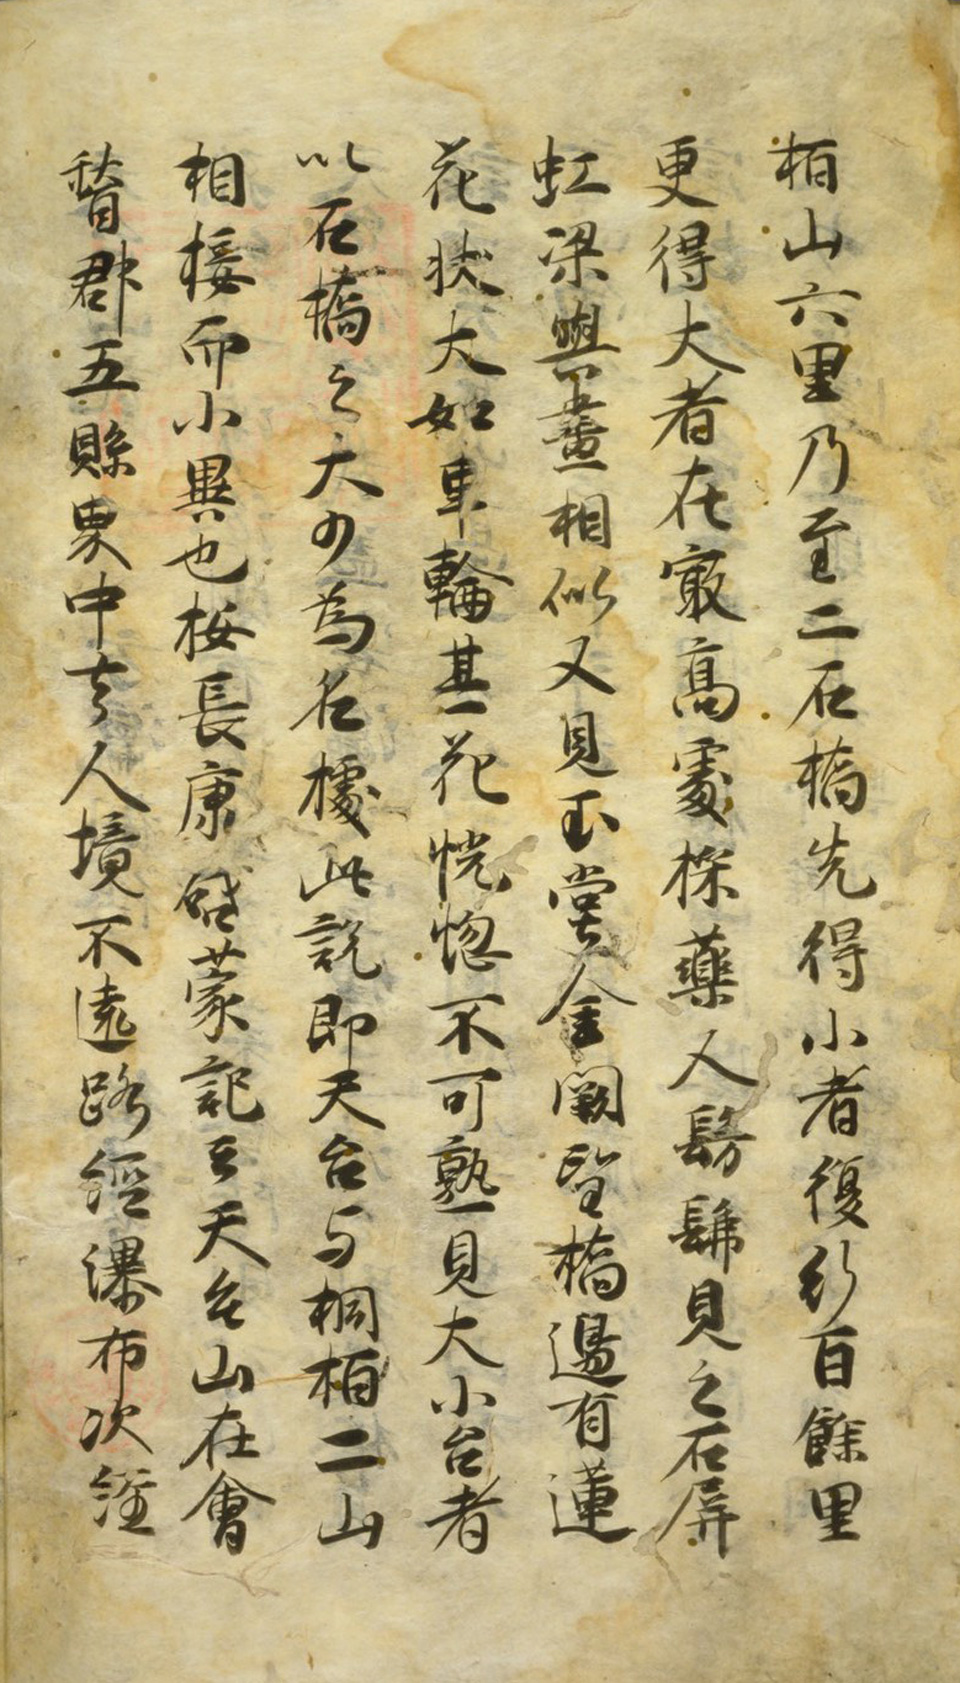 栢山六里乃至二石橋先得小者復行百餘里
更得大者在㝡高處採藥人髣髴見之石屏
虹梁與畫相似又見玉堂金闕望橋邊有蓮
花状大如車輪其花恍惚不可熟見大小台者
以石橋之大少為名據此説即天台与桐栢二山
相接而小異也桉長康啓蒙記云天台山在會
稽郡五縣界中去人境不遠路經瀑布次經